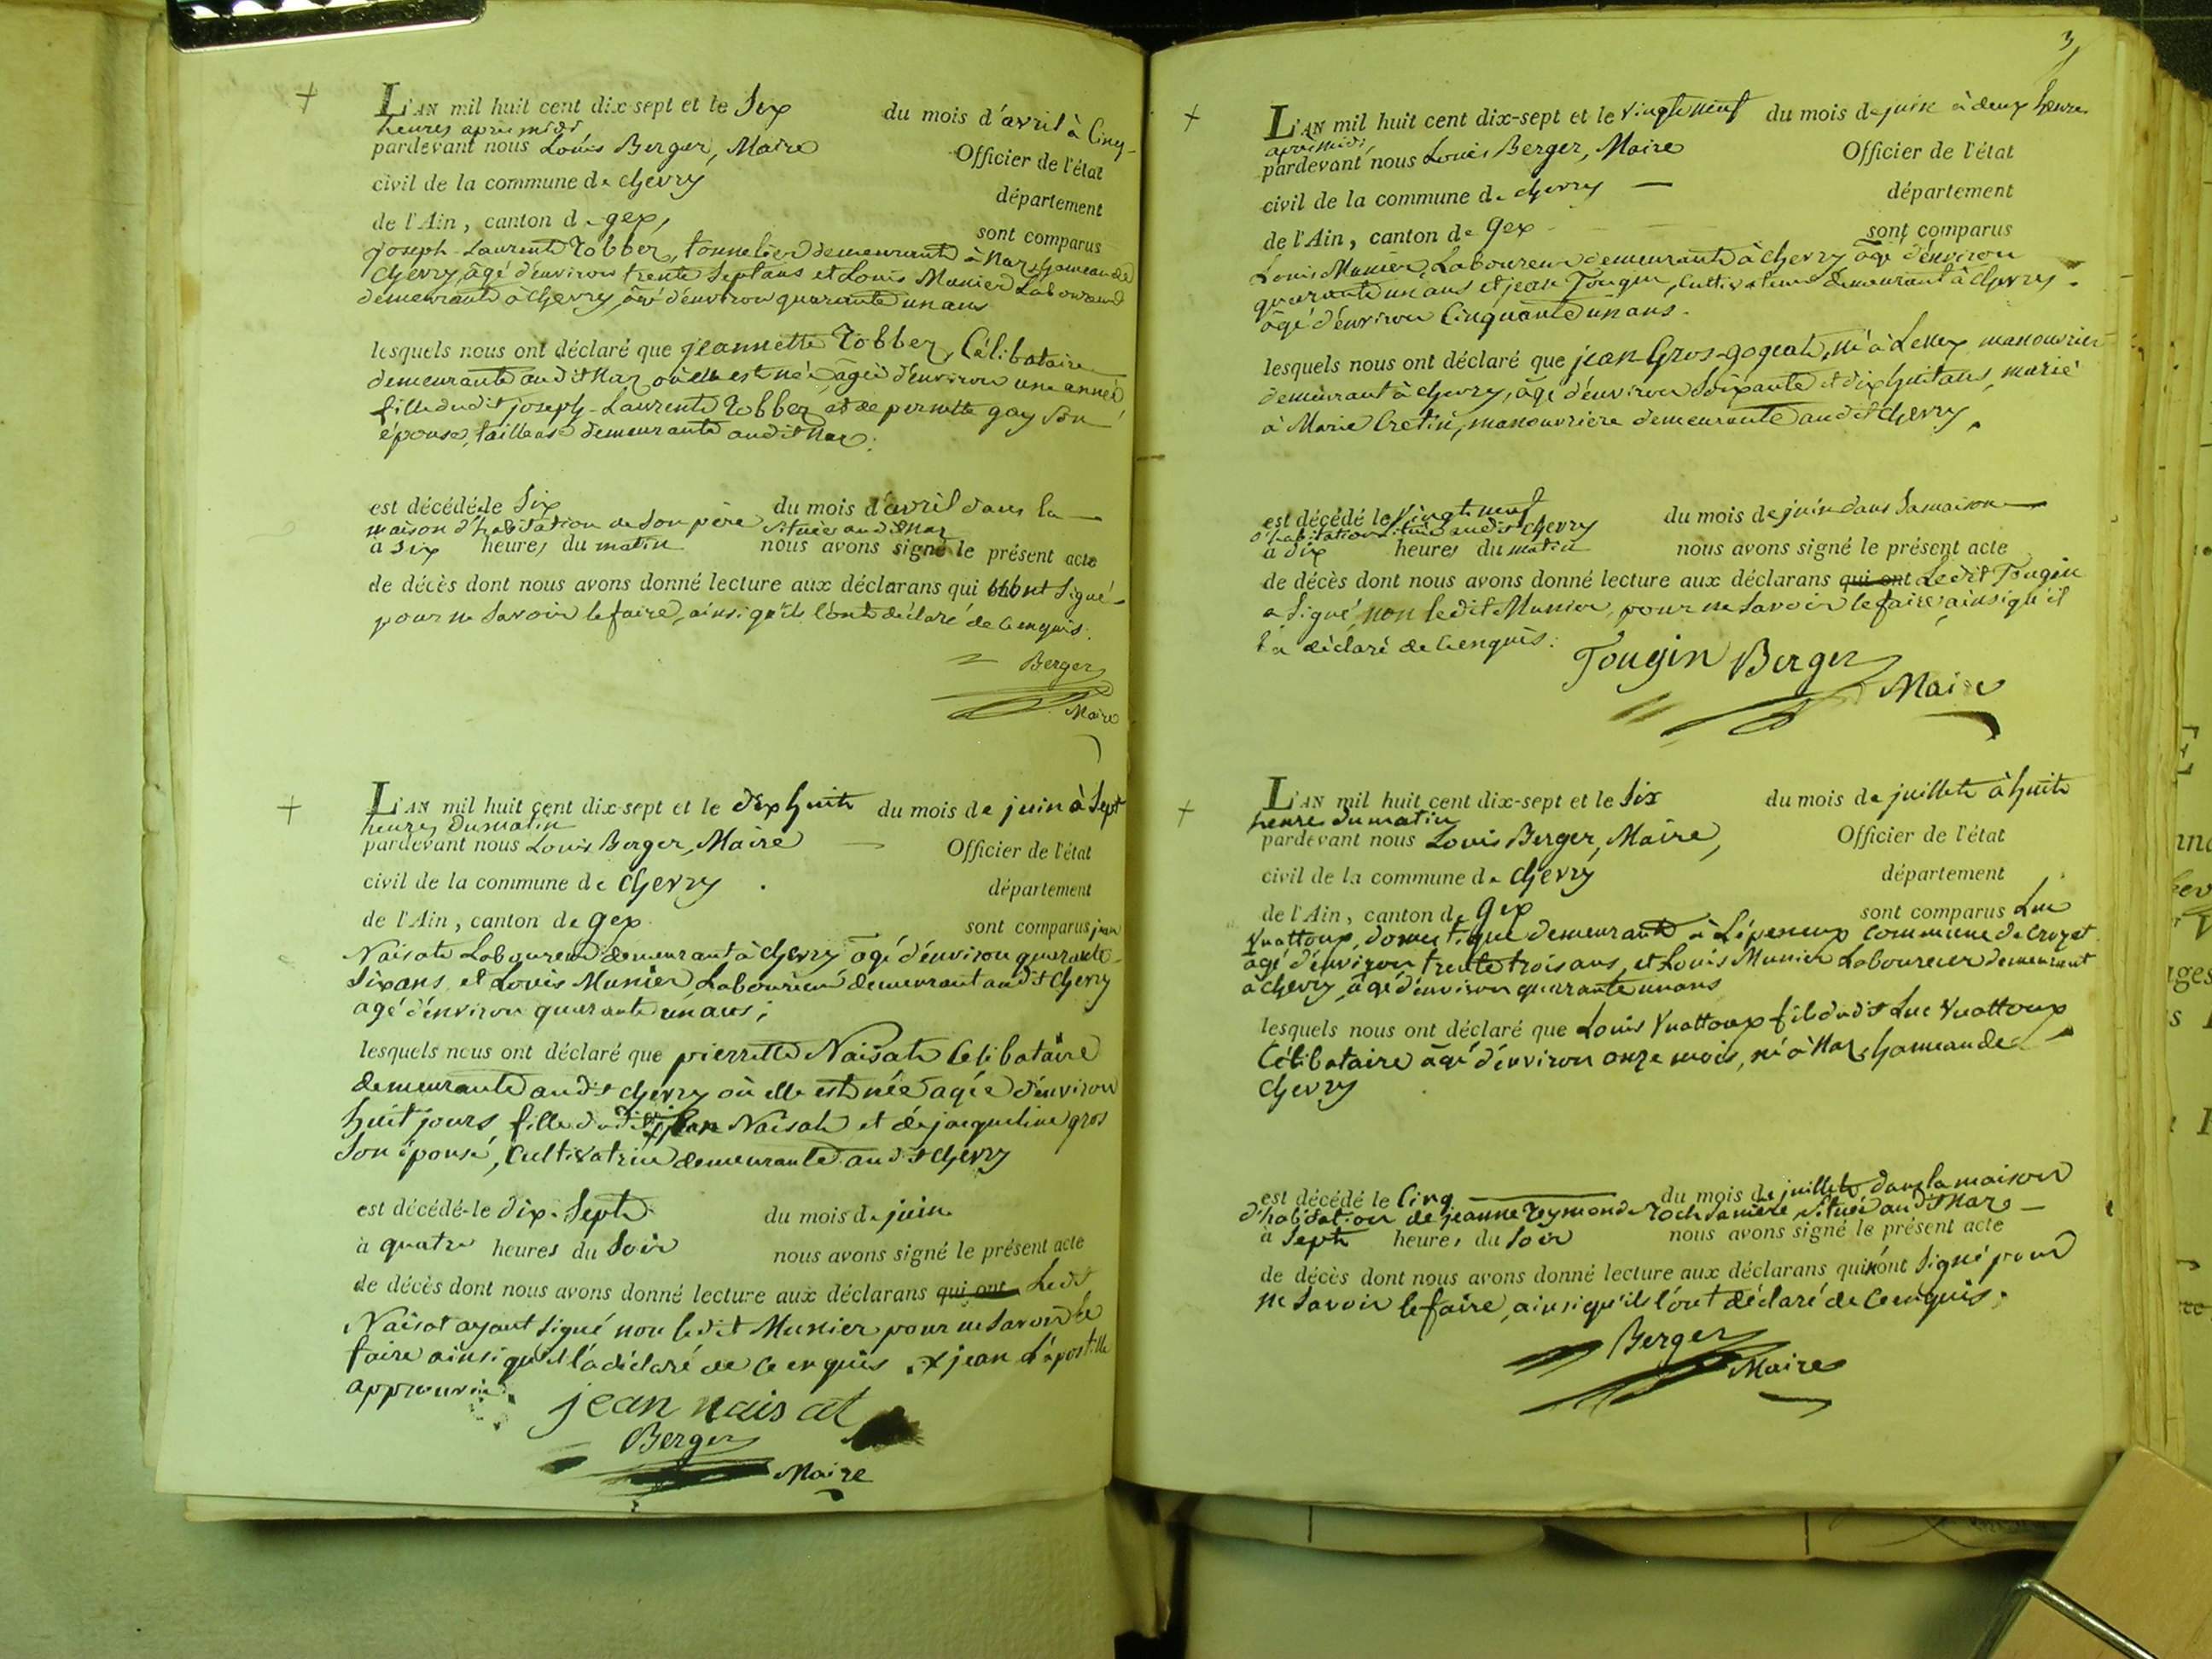 +
L'AN mil huit cent dix-sept et le Six du mois d'avril à Cinq
heures après midi
pardevant nous Louis Berger, Maire Officier de l'état
civil de la commune de chevry département
de l'Ain, canton de gex, sont comparus
joseph-Laurent Robbez, tonnelier demeurant à Naz, hameau de
Chevry, âgé d'environ trente Septans et Louis Munier Laboureur
demeurant à Chevry, âgé d'environ quarante un ans
lesquels nous ont déclaré que jeannette Robbez, Célibataire
demeurante audit Naz où elle est née, agée d'environ une année,
fille dudit joseph-Laurent Robbez et de pernette gay Son
épouse, tailleuse demeurante audit Naz.
est décédée le Six du mois d'avril dans la
maison d'habitation de Son père située audit Naz
à Six heures du matin nous avons signé le présent acte
de décès dont nous avons donné lecture aux déclarans qui n'ont Signé
pour ne Savoir le faire, ainsi qu'ils l'ont déclaré de ce enquis.
Berger
Maire
+
L'AN mil huit cent dix-sept et le dix huit du mois de juin à Sept
heures du matin
pardevant nous Louis Berger, Maire Officier de l'état
civil de la commune de Chevry département
de l'Ain, canton de gex sont comparus jean
Naisat Laboureur demeurant à Chevry âgé d'environ quarante
Sixans, et Louis Munier Laboureur demeurant audit Chevry
agé d'environ quarante unans;
lesquels nous ont déclaré que pierrette Naisat Celibataire
demeurante audit chevry où elle est née agée d'environ
huit jours fille dudit jean Naisat et de jacqueline gros
Son épouse, Cultivatrice demeurante audit Chevry
est décédé le dix-Sept du mois de juin
à quatre heures du Soir nous avons signé le présent acte
de décès dont nous avons donné lecture aux déclarans qui ont Ledit
Naisat ayant Signé non ledit Munier pour ne Savoir le
faire ainsi qu'il l'a déclaré de ce enquis. x jean L'apostille
approuvée
jean naisat
Berger
Maire
3
+
L'AN mil huit cent dix-sept et le vingt neuf du mois de juin à deux heures
après midi,
pardevant nous Louis Berger, Maire Officier de l'état
civil de la commune de chevry département
de l'Ain, canton de Gex sont comparus
Louis Munier, Laboureur demeurant à Chevry âgé d'environ
quarante un ans et jean Tougin, Cultivateur demeurant à Chevry,
âgé d'environ Cinquante un ans.
lesquels nous ont déclaré que jean Gros-gogeat, né à Lelex manouvrier
demeurant à chevry, âgé d'environ Soixante et dix huit ans, marié
à Marie Cretin, manouvriere demeurante audit Chevry,
est décédé le vingt neuf du mois de juin dans Sa maison
d'habitation située audit Chevry
à dix heures du matin nous avons signé le présent acte
de décès dont nous avons donné lecture aux déclarans qui ont Ledit Tougin
a Signé, non ledit Munier, pour ne Savoir le faire, ainsi qu'il
l'a déclaré de ce enquis.
Tougin Berger
Maire
+
L'AN mil huit cent dix-sept et le Six du mois de juillet à huit
heure du matin
pardevant nous Louis Berger, Maire, Officier de l'état
civil de la commune de Chevry département
de l'Ain, canton de Gex sont comparus Luc
Vuattoux, domestique demeurant à Lépeneux Commune de Crozet
âgé d'environ trente trois ans, et Louis Munier Laboureur demeurant
à Chevry, âgé d'environ quarante unans
lesquels nous ont déclaré que Louis Vuattoux fils dudit Luc Vuattoux
Célibataire âgé d'environ onze mois, né à Naz, hameau de
Chevry
est décédé le Cinq du mois de juillet dans la maison
d'habitation de jeanne Reymond située audit Naz
à Sept heures du Soir nous avons signé le présent acte
de décès dont nous avons donné lecture aux déclarans qui n'ont Signé pour
ne Savoir le faire, ainsi qu'ils l'ont déclaré de Ce enquis.
Berger
Maire